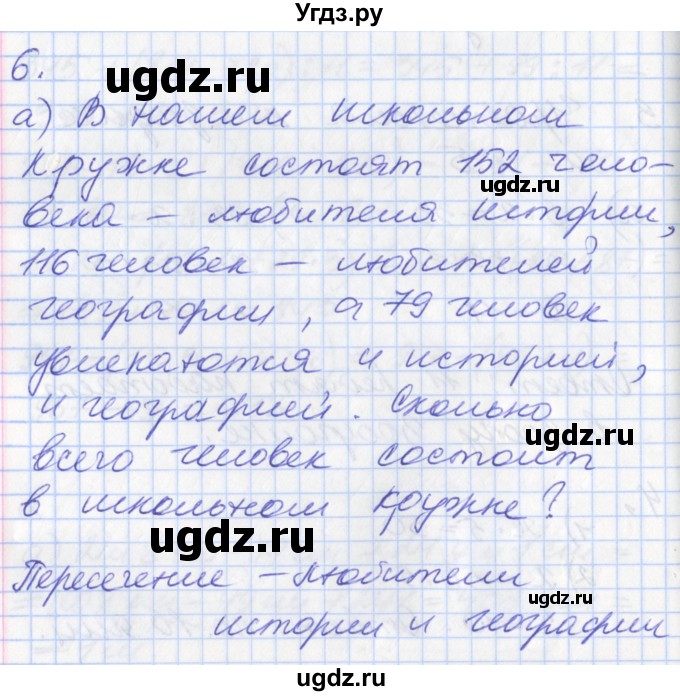 Угдз.ру
6.
ugdz.ru
а) В нашем школьном
ugdz.ru
кружке состоят 152 чело-
века – любителя истории,
ugdz.ru
116 человек – любителей
географии, а 79 человек
увлекаются и историей,
ugdz.ru
и географией. Сколько
всего человек состоит
ugdz.ru
в школьном кружке?
ugdz.ru
Пересечение – любители
ugdz.ru
истории и географии